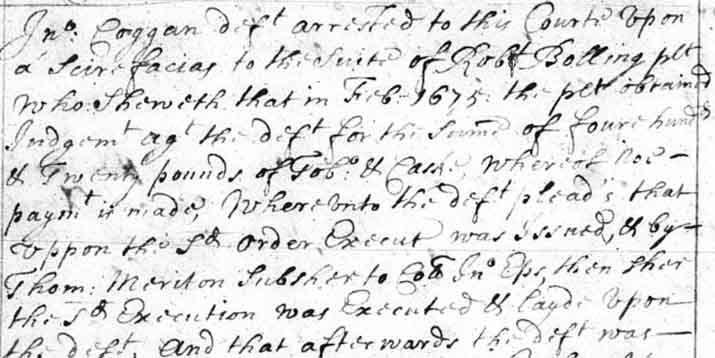 Jno. Coggan deft arrested to this Courte Vpon
a Scire facias to the Suite of Robt Bolling plt
who Sheweth that in Feb: 1675: the plt obtained
Judgemt agt the deft for the Sume of foure hundd
& Twenty pounds of Tobo: & Caske, whereof noe
paymt is made, Wherevnto the deft pleads that
Vppon the Sd Order Execut was issued, & by
Thom: Meriton Subsher to Jno Eps, then sher
the Sd Execution was Executed & Layde Vpon
the deft, And that afterwards the deft was